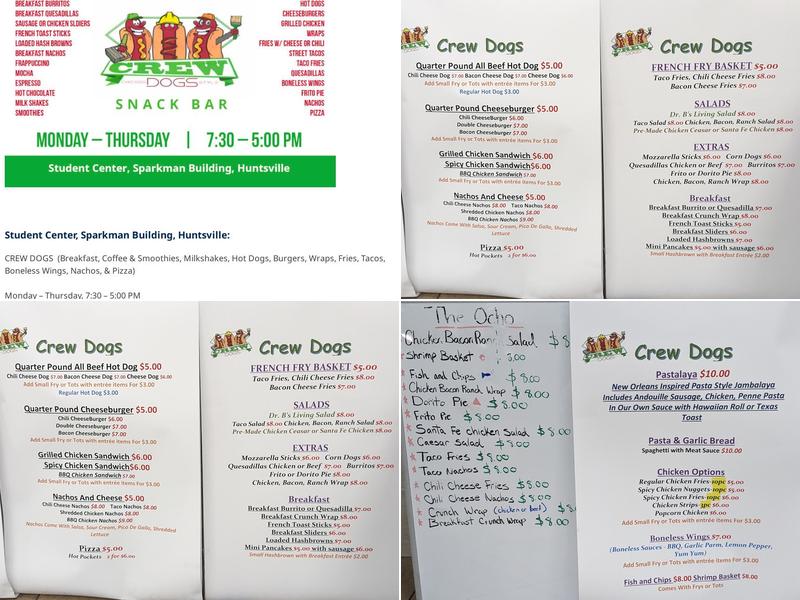 BREAKFAST BURRITOS
BREAKFAST QUESADILLAS
SAUSAGE OR CHICKEN SLDIERS
FRENCH TOAST STICKS
LOADED HASH BROWNS
BREAKFAST NACHOS
FRAPPUCCINO
MOCHA
ESPRESSO
HOT CHOCOLATE
MILK SHAKES
SMOOTHIES
CREW
DOGS
SNACK BAR
HOT DOGS
CHEESEBURGERS
GRILLED CHICKEN
WRAPS
FRIES W/ CHEESE OR CHILI
STREET TACOS
TACO FRIES
QUESADILLAS
BONELESS WINGS
FRITO PIE
NACHOS
PIZZA
MONDAY – THURSDAY | 7:30 – 5:00 PM
Student Center, Sparkman Building, Huntsville
Student Center, Sparkman Building, Huntsville:
CREW DOGS (Breakfast, Coffee & Smoothies, Milkshakes, Hot Dogs, Burgers, Wraps, Fries, Tacos,
Boneless Wings, Nachos, & Pizza)
Monday – Thursday, 7:30 – 5:00 PM
Crew Dogs
Quarter Pound All Beef Hot Dog $5.00
Chili Cheese Dog $7.00 Bacon Cheese Dog $7.00 Cheese Dog $6.00
Add Small Fry or Tots with entrée items For $3.00
Regular Hot Dog $3.00
Quarter Pound Cheeseburger $5.00
Chili Cheeseburger $6.00
Double Cheeseburger $7.00
Bacon Cheeseburger $7.00
Add Small Fry or Tots with entrée items For $3.00
Grilled Chicken Sandwich $6.00
Spicy Chicken Sandwich $6.00
BBQ Chicken Sandwich $7.00
Add Small Fry or Tots with entrée items For $3.00
Nachos And Cheese $5.00
Chili Cheese Nachos $8.00 Taco Nachos $8.00
Shredded Chicken Nachos $8.00
BBQ Chicken Nachos $9.00
Nachos Come With Salsa, Sour Cream, Pico De Gallo, Shredded
Lettuce
Pizza $5.00
Hot Pockets 2 for $6.00
Crew Dogs
FRENCH FRY BASKET $5.00
Taco Fries, Chili Cheese Fries $8.00
Bacon Cheese Fries $7.00
SALADS
Dr. B's Living Salad $8.00
Taco Salad $8.00 Chicken, Bacon, Ranch Salad $8.00
Pre-Made Chicken Ceasar or Santa Fe Chicken $8.00
EXTRAS
Mozzarella Sticks $6.00 Corn Dogs $6.00
Quesadillas Chicken or Beef $7.00 Burritos $7.00
Frito or Dorito Pie $8.00
Chicken, Bacon, Ranch Wrap $8.00
Breakfast
Breakfast Burrito or Quesadilla $7.00
Breakfast Crunch Wrap $8.00
French Toast Sticks $5.00
Breakfast Sliders $6.00
Loaded Hashbrowns $7.00
Mini Pancakes $5.00 with sausage $6.00
Small Hashbrown with Breakfast Entrée $2.00
Crew Dogs
Quarter Pound All Beef Hot Dog $5.00
Chili Cheese Dog $7.00 Bacon Cheese Dog $7.00 Cheese Dog $6.00
Add Small Fry or Tots with entrée items For $3.00
Regular Hot Dog $3.00
Quarter Pound Cheeseburger $5.00
Chili Cheeseburger $6.00
Double Cheeseburger $7.00
Bacon Cheeseburger $7.00
Add Small Fry or Tots with entrée items For $3.00
Grilled Chicken Sandwich $6.00
Spicy Chicken Sandwich $6.00
BBQ Chicken Sandwich $7.00
Add Small Fry or Tots with entrée items For $3.00
Nachos And Cheese $5.00
Chili Cheese Nachos $8.00 Taco Nachos $8.00
Shredded Chicken Nachos $8.00
BBQ Chicken Nachos $9.00
Nachos Come With Salsa, Sour Cream, Pico De Gallo, Shredded
Lettuce
Pizza $5.00
Hot Pockets 2 for $6.00
Crew Dogs
FRENCH FRY BASKET $5.00
Taco Fries, Chili Cheese Fries $8.00
Bacon Cheese Fries $7.00
SALADS
Dr. B's Living Salad $8.00
Taco Salad $8.00 Chicken, Bacon, Ranch Salad $8.00
Pre-Made Chicken Ceasar or Santa Fe Chicken $8.00
EXTRAS
Mozzarella Sticks $6.00 Corn Dogs $6.00
Quesadillas Chicken or Beef $7.00 Burritos $7.00
Frito or Dorito Pie $8.00
Chicken, Bacon, Ranch Wrap $8.00
Breakfast
Breakfast Burrito or Quesadilla $7.00
Breakfast Crunch Wrap $8.00
French Toast Sticks $5.00
Breakfast Sliders $6.00
Loaded Hashbrowns $7.00
Mini Pancakes $5.00 with sausage $6.00
Small Hashbrown with Breakfast Entrée $2.00
The Ocho
Chicken Bacon Ranch Salad $8
Shrimp Basket
Fish and Chips $8.00
Chicken Bacon Ranch Wrap $8.00
Dorito Pie $8.00
Frito Pie $8.00
Santa Fe Chicken Salad $8.00
Caesar Salad $8.00
Taco Fries $8.00
Taco Nachos $8.00
Chili Cheese Fries $8.00
Chili Cheese Nachos $8.00
Crunch Wrap (chicken or beef) $8
Breakfast Crunch Wrap $8.00
Crew Dogs
Pastalaya $10.00
New Orleans Inspired Pasta Style Jambalaya
Includes Andouille Sausage, Chicken, Penne Pasta
In Our Own Sauce with Hawaiian Roll or Texas
Toast
Pasta & Garlic Bread
Spaghetti with Meat Sauce $10.00
Chicken Options
Regular Chicken Fries-10pc $5.00
Spicy Chicken Nuggets-10pc $5.00
Spicy Chicken Fries-10pc $6.00
Chicken Strips-3pc $6.00
Popcorn Chicken $6.00
Add Small Fry or Tots with entrée items For $3.00
Boneless Wings $7.00
(Boneless Sauces - BBQ, Garlic Parm, Lemon Pepper,
Yum Yum)
Add Small Fry or Tots with entrée items For $3.00
Fish and Chips $8.00 Shrimp Basket $8.00
Comes With Frys or Tots